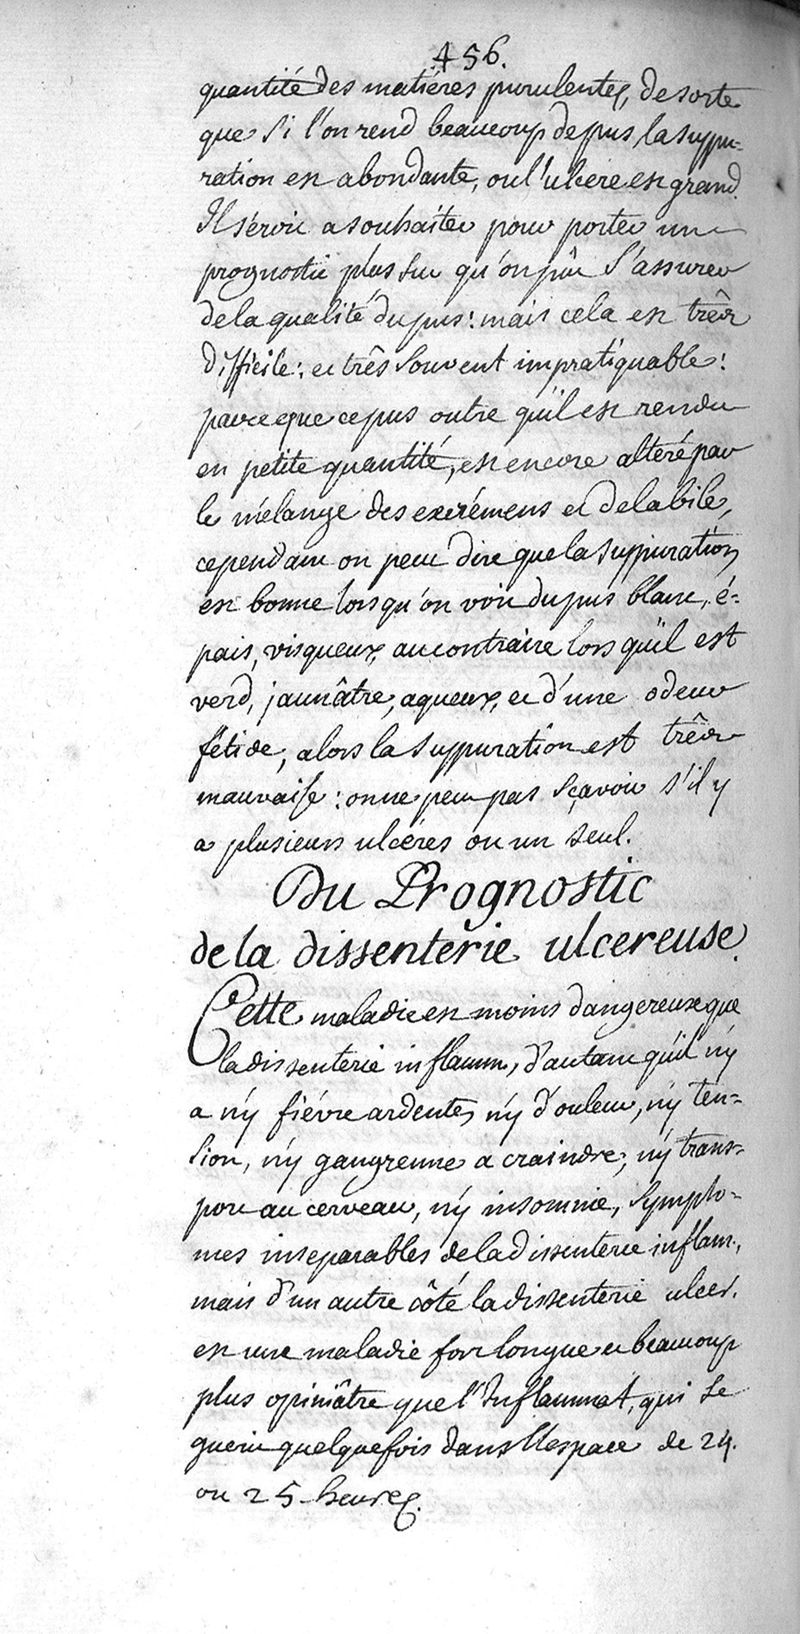 456.
quantité des matiéres purulentes, de sorte
que si l'on rend beaucoup de pus la suppu-
ration est abondante, ou l'ulcere est grand.
Il seroit a souhaiter pour porter un
prognostic plus sur qu'on pût s'assurer
de la qualité du pus: mais cela est trés
difficile: et trés souvent impratiquable:
parce que ce pus outre qu'il est rendu
en petite quantité, est encore alteré par
le mélange des excrémens et de la bile,
cependant on peut dire que la suppuration
est bonne lorsqu'on voit du pus blanc, é-
pais, visqueux, au contraire lors qu'il est
verd, jaunâtre, aqueux, et d'une odeur
fétide, alors la suppuration est trés
mauvaise: on ne peut pas sçavoir s'il y
a plusieurs ulcéres ou un seul.
Du Prognostic
de la dissenterie ulcereuse.
Cette maladie est moins dangereuse que
la dissenterie inflamm, d'autant qu'il n'y
a n'y fiévre ardente, n'y douleur, n'y ten-
sion, n'y gangrenne a craindre, n'y trans-
port au cerveau, n'y insomnie, sympto-
mes inseparables de la dissenterie inflam.,
mais d'un autre côté la dissenterie ulcer.
est une maladie fort longue et beaucoup
plus opiniâtre que l'Inflammat, qui se
guerit quelquefois dans l'espace de 24.
ou 25 heures.